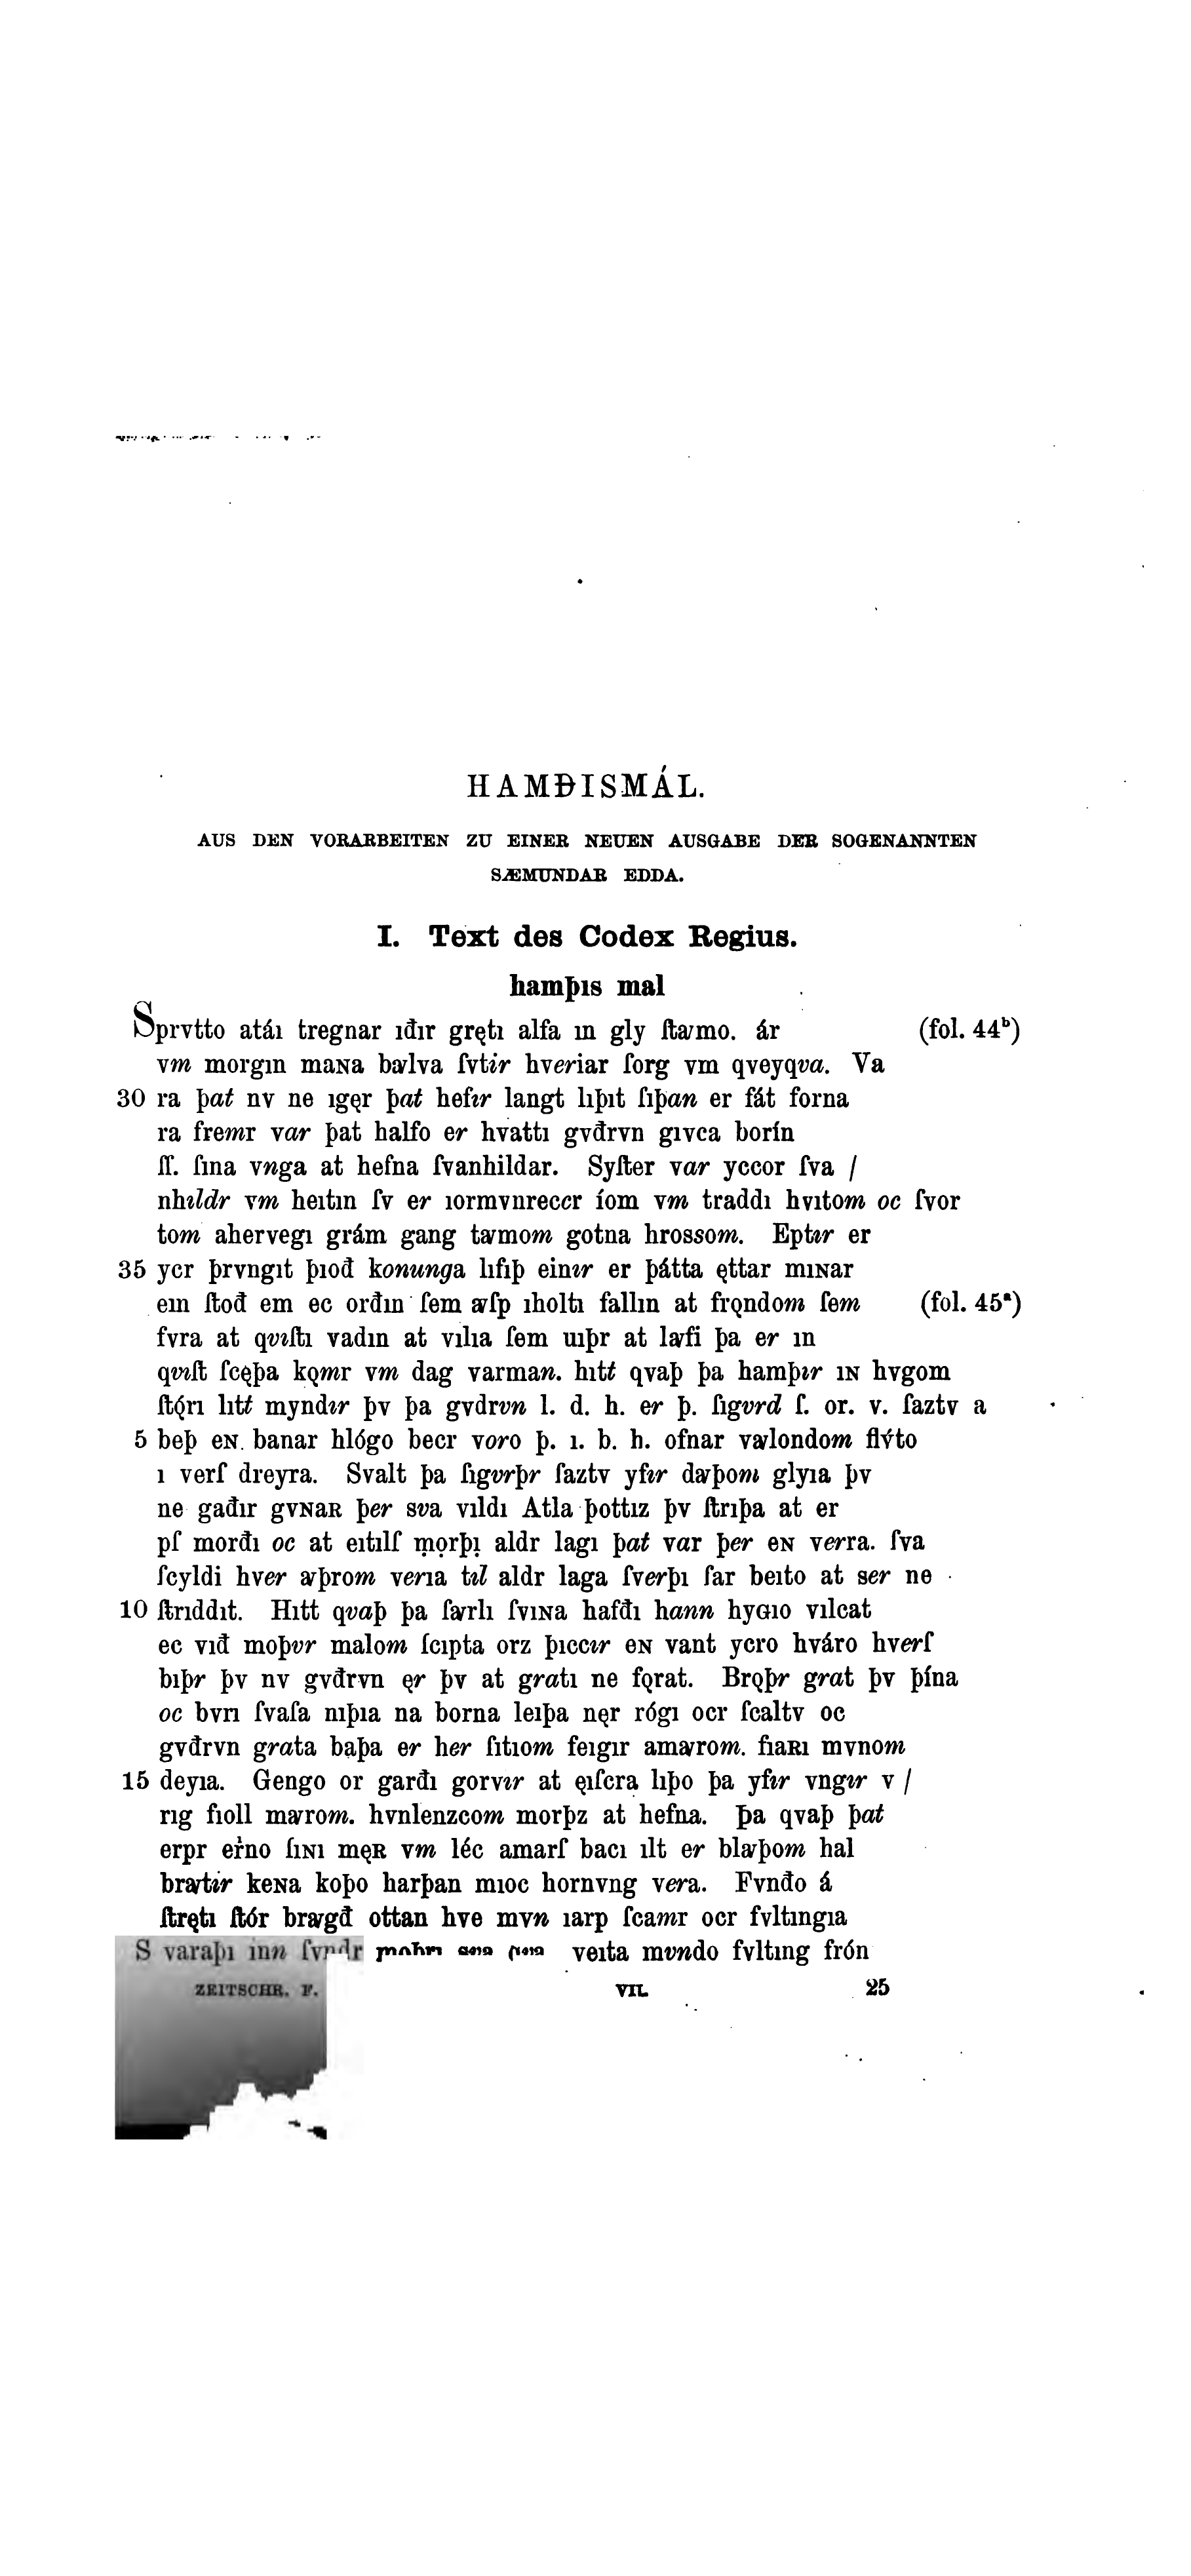 HAMÐISMÁL.
AUS DEN VORARBEITEN ZU EINER NEUEN AUSGABE DER SOGENANNTEN
SÆMUNDAR EDDA.
I. Text des Codex Regius.
hamþıs mal
Sprvtto atáı tregnar ıđır grętı alfa ın gly ſtaꜹmo. ár (fol. 44ᵇ)
vm morgın maɴa bꜹlva ſvtir hveriar ſorg vm qveyqva. Va
30 ra þat nv ne ıgęr þat hefır langt lıþıt ſıþan er fát forna
ra fremr var þat halfo er hvattı gvđrvn gıvca borín
ſſ. ſına vnga at hefna ſvanhildar. Syſter var yccor ſva /
nhıldr vm heıtın ſv er ıormvnreccr íom vm traddı hvıtom oc ſvor
tom ahervegı grám gang tꜹmom gotna hrossom. Eptır er
35 ycr þrvngıt þıođ konunga lıfıþ einır er þátta ęttar mıɴar
eın ſtođ em ec orđın ſem ꜹſp ıholtı fallın at frǫndom ſem (fol. 45ᵃ)
fvra at qvıſtı vadın at vılıa ſem uıþr at lꜹfi þa er ın
qvıſt ſcęþa kǫmr vm dag varman. hıtt qvaþ þa hamþır ıɴ hvgom
ſtǫ́rı lıtt myndır þv þa gvdrvn l. d. h. er þ. ſıgvrd ſ. or. v. ſaztv a
5 beþ eɴ banar hlógo becr voro þ. ı. b. h. ofnar vꜹlondom flv́to
ı verſ dreyra. Svalt þa ſıgvrþr ſaztv yfır dꜹþom glyıa þv
ne gađır gvɴaʀ þer sva vıldı Atla þottız þv ſtrıþa at er
pſ morđı oc at eıtılſ ṃọrþị aldr lagı þat var þer eɴ verra. ſva
ſcyldi hver ꜹþrom verıa tıl aldr laga ſverþı ſar beıto at ser ne
10 ſtrıddıt. Hıtt qvaþ þa ſꜹrlı ſvıɴa hafđı hann hyɢıo vılcat
ec vıđ moþvr malom ſcıpta orz þıccır eɴ vant ycro hváro hverſ
bıþr þv nv gvđrvn ęr þv at gratı ne fǫrat. Brǫþr grat þv þína
oc bvrı ſvaſa nıþıa na borna leıþa nęr rógı ocr ſcaltv oc
gvđrvn grata bạþa er her ſıtıom feigır amꜹrom. fıaʀı mvnom
15 deyıa. Gengo or garđı gorvır at ęıſcra lıþo þa yfır vngır v /
rıg fıoll mꜹrom. hvnlenzcom morþz at hefna. Þa qvaþ þat
erpr eṙno ſıɴı męʀ vm léc amarſ bacı ılt er blꜹþom hal
brꜹtir keɴa koþo harþan mıoc hornvng vera. Fvnđo á
ſtrętı ſtór brꜹgđ ottan hve mvn ıarp ſcamr ocr fvltıngıa
S varaþı inn ſvndr veıta mvndo fvltıng frón
ZEITSCHR. F. VII. 25